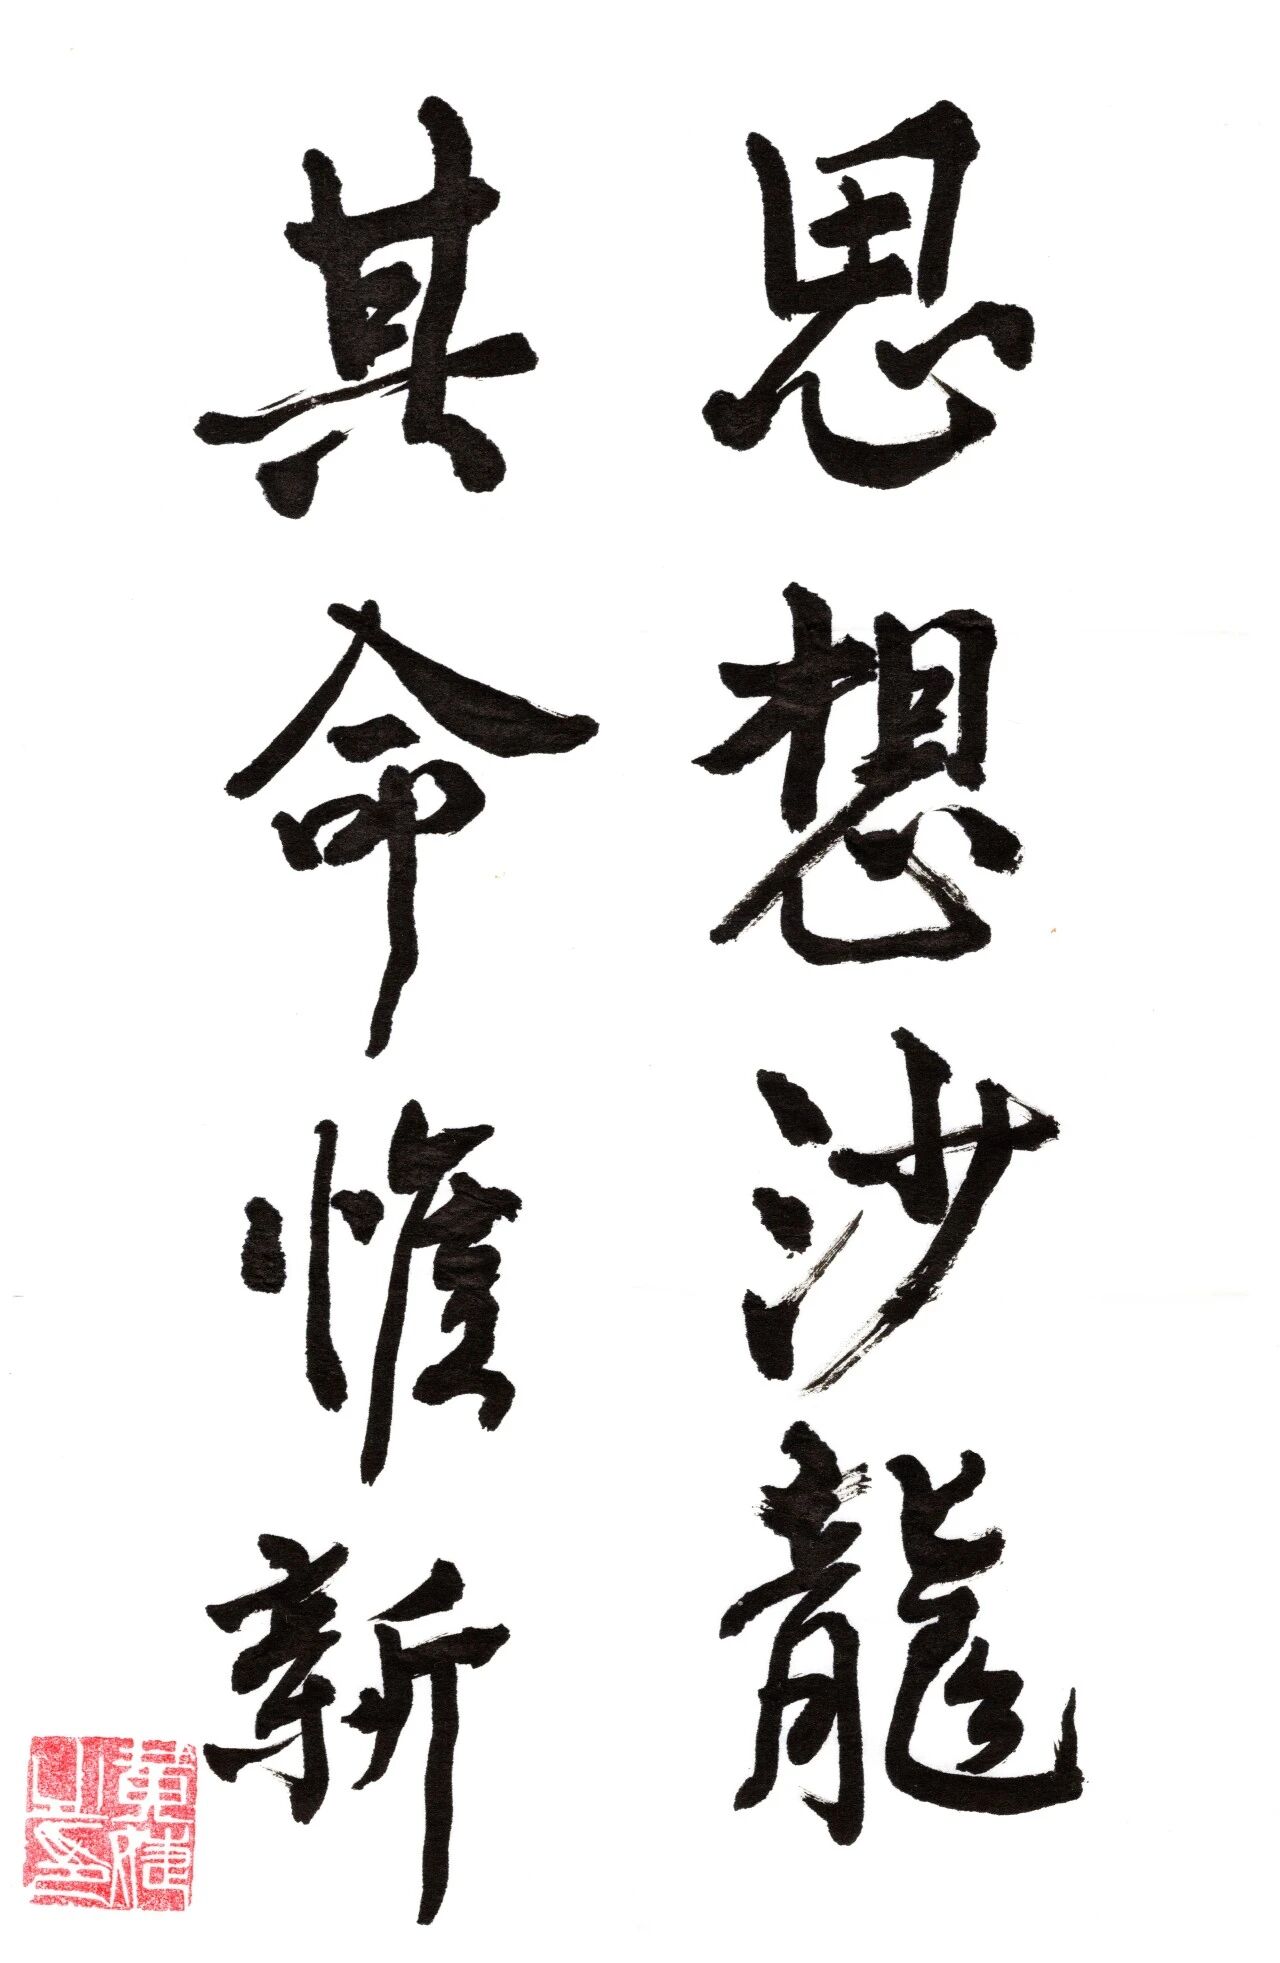 思想沙龍
其命惟新